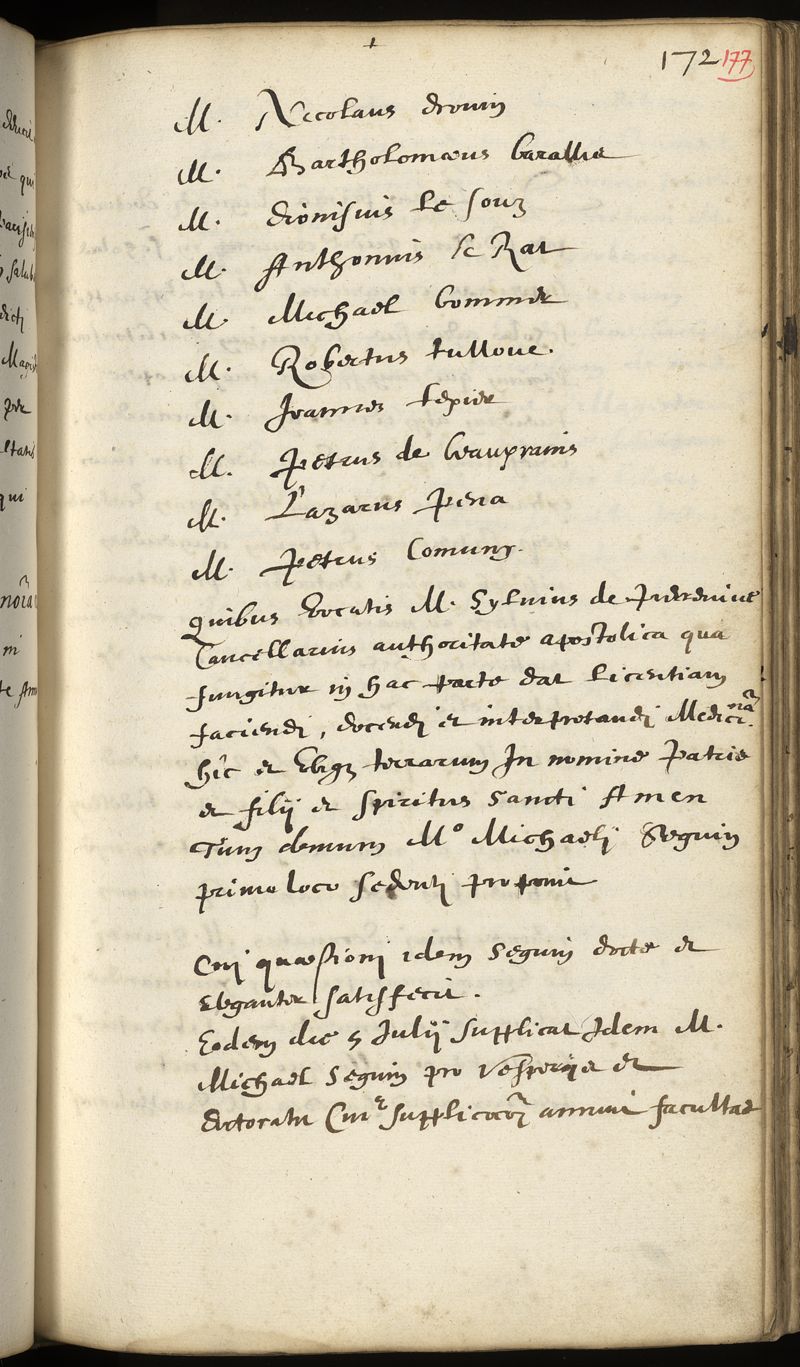 172 177
M. Nicolaus drouin
M. Bartholomæus barallis
M. dionisius le souz
M. Anthonius le Rat
M. Michael bommer
M. Robertus tulloue.
M. Joannes texier
M. Petrus de beauprains
M. Lazarus Pena
M. Petrus Comung.
Quibus Vocatis M. Sylvius de Pierevive
Cancellarius authoritate apostolica qua
fungitur in hac parte dat licentiam
faciendi, docendi et interpretandi Medicinā.
hîc et Vbiqz terrarum In nomine Patris
et filij et spiritus Sancti Amen
Tum demum Mo Michaeli Seguin
primo loco sedenti proponit
Cui quæstioni idem Seguin docte et
Eleganter satisfecit.
Eodem die 5 Julij supplicat Idem M.
Michael Seguin pro Vesperijs et
doctoratu Cui annuit facultas